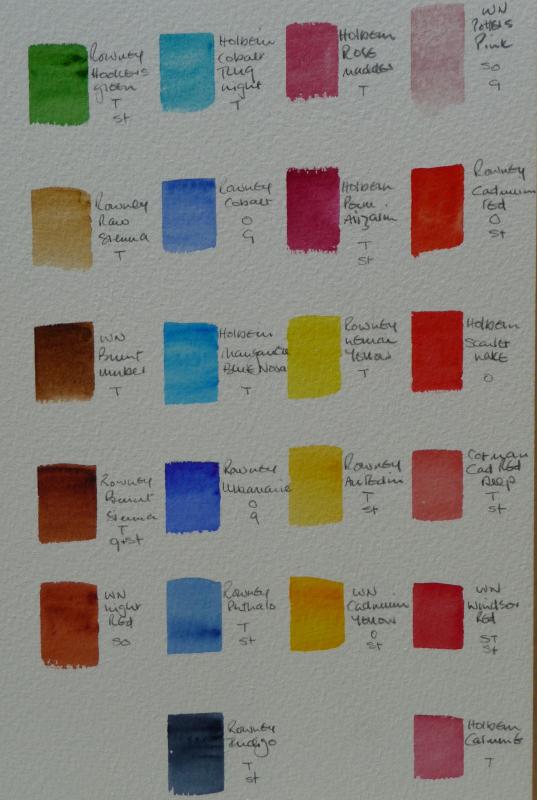 Rowney
Hookers
green
T
St
Holbein
Cobalt
Turq
night
T
Holbein
Rose
madder
T
WN
Potters
Pink
SO
G
Rowney
Raw
Sienna
T
Rowney
Cobalt
O
G
Holbein
Perm.
Alizarin
T
St
Rowney
Cadmium
red
O
St
WN
Burnt
umber
T
Holbein
Manganese
Blue Nova
T
Rowney
Lemon
Yellow
T
Holbein
Scarlet
Lake
O
Rowney
Burnt
Sienna
T
G+St
Rowney
O
G
Rowney
T
St
Cotman
Cad Red
Deep
T
St
WN
Light
Red
SO
Rowney
Phthalo
T
St
WN
Cadmium
Yellow
O
St
WN
Windsor
Red
ST
St
Rowney
Indigo
T
St
Holbein
Carmine
T